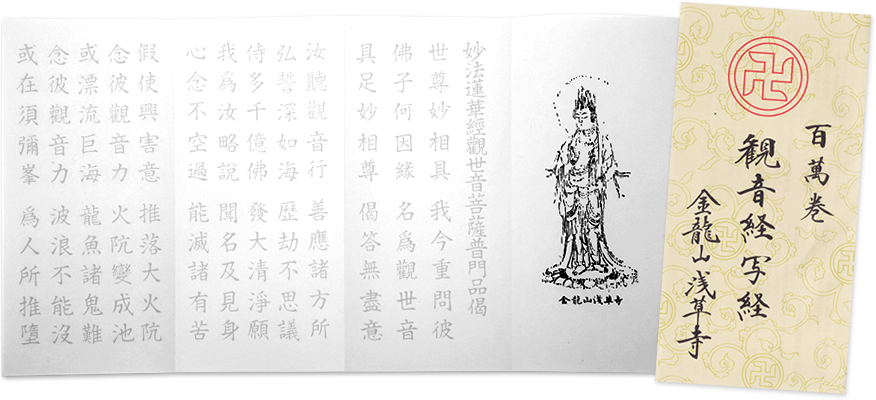 百萬巻
観音経写経
金龍山浅草寺
金龍山浅草寺
妙法蓮華經觀世音菩薩普門品偈
世尊妙相具 我今重問彼
佛子何因緣 名爲觀世音
具足妙相尊 偈答無盡意
汝聽觀音行 善應諸方所
弘誓深如海 歷劫不思議
侍多千億佛 發大清淨願
我爲汝略說 聞名及見身
心念不空過 能滅諸有苦
假使興害意 推落大火阬
念彼觀音力 火阬變成池
或漂流巨海 龍魚諸鬼難
念彼觀音力 波浪不能沒
或在須彌峯 爲人所推墮